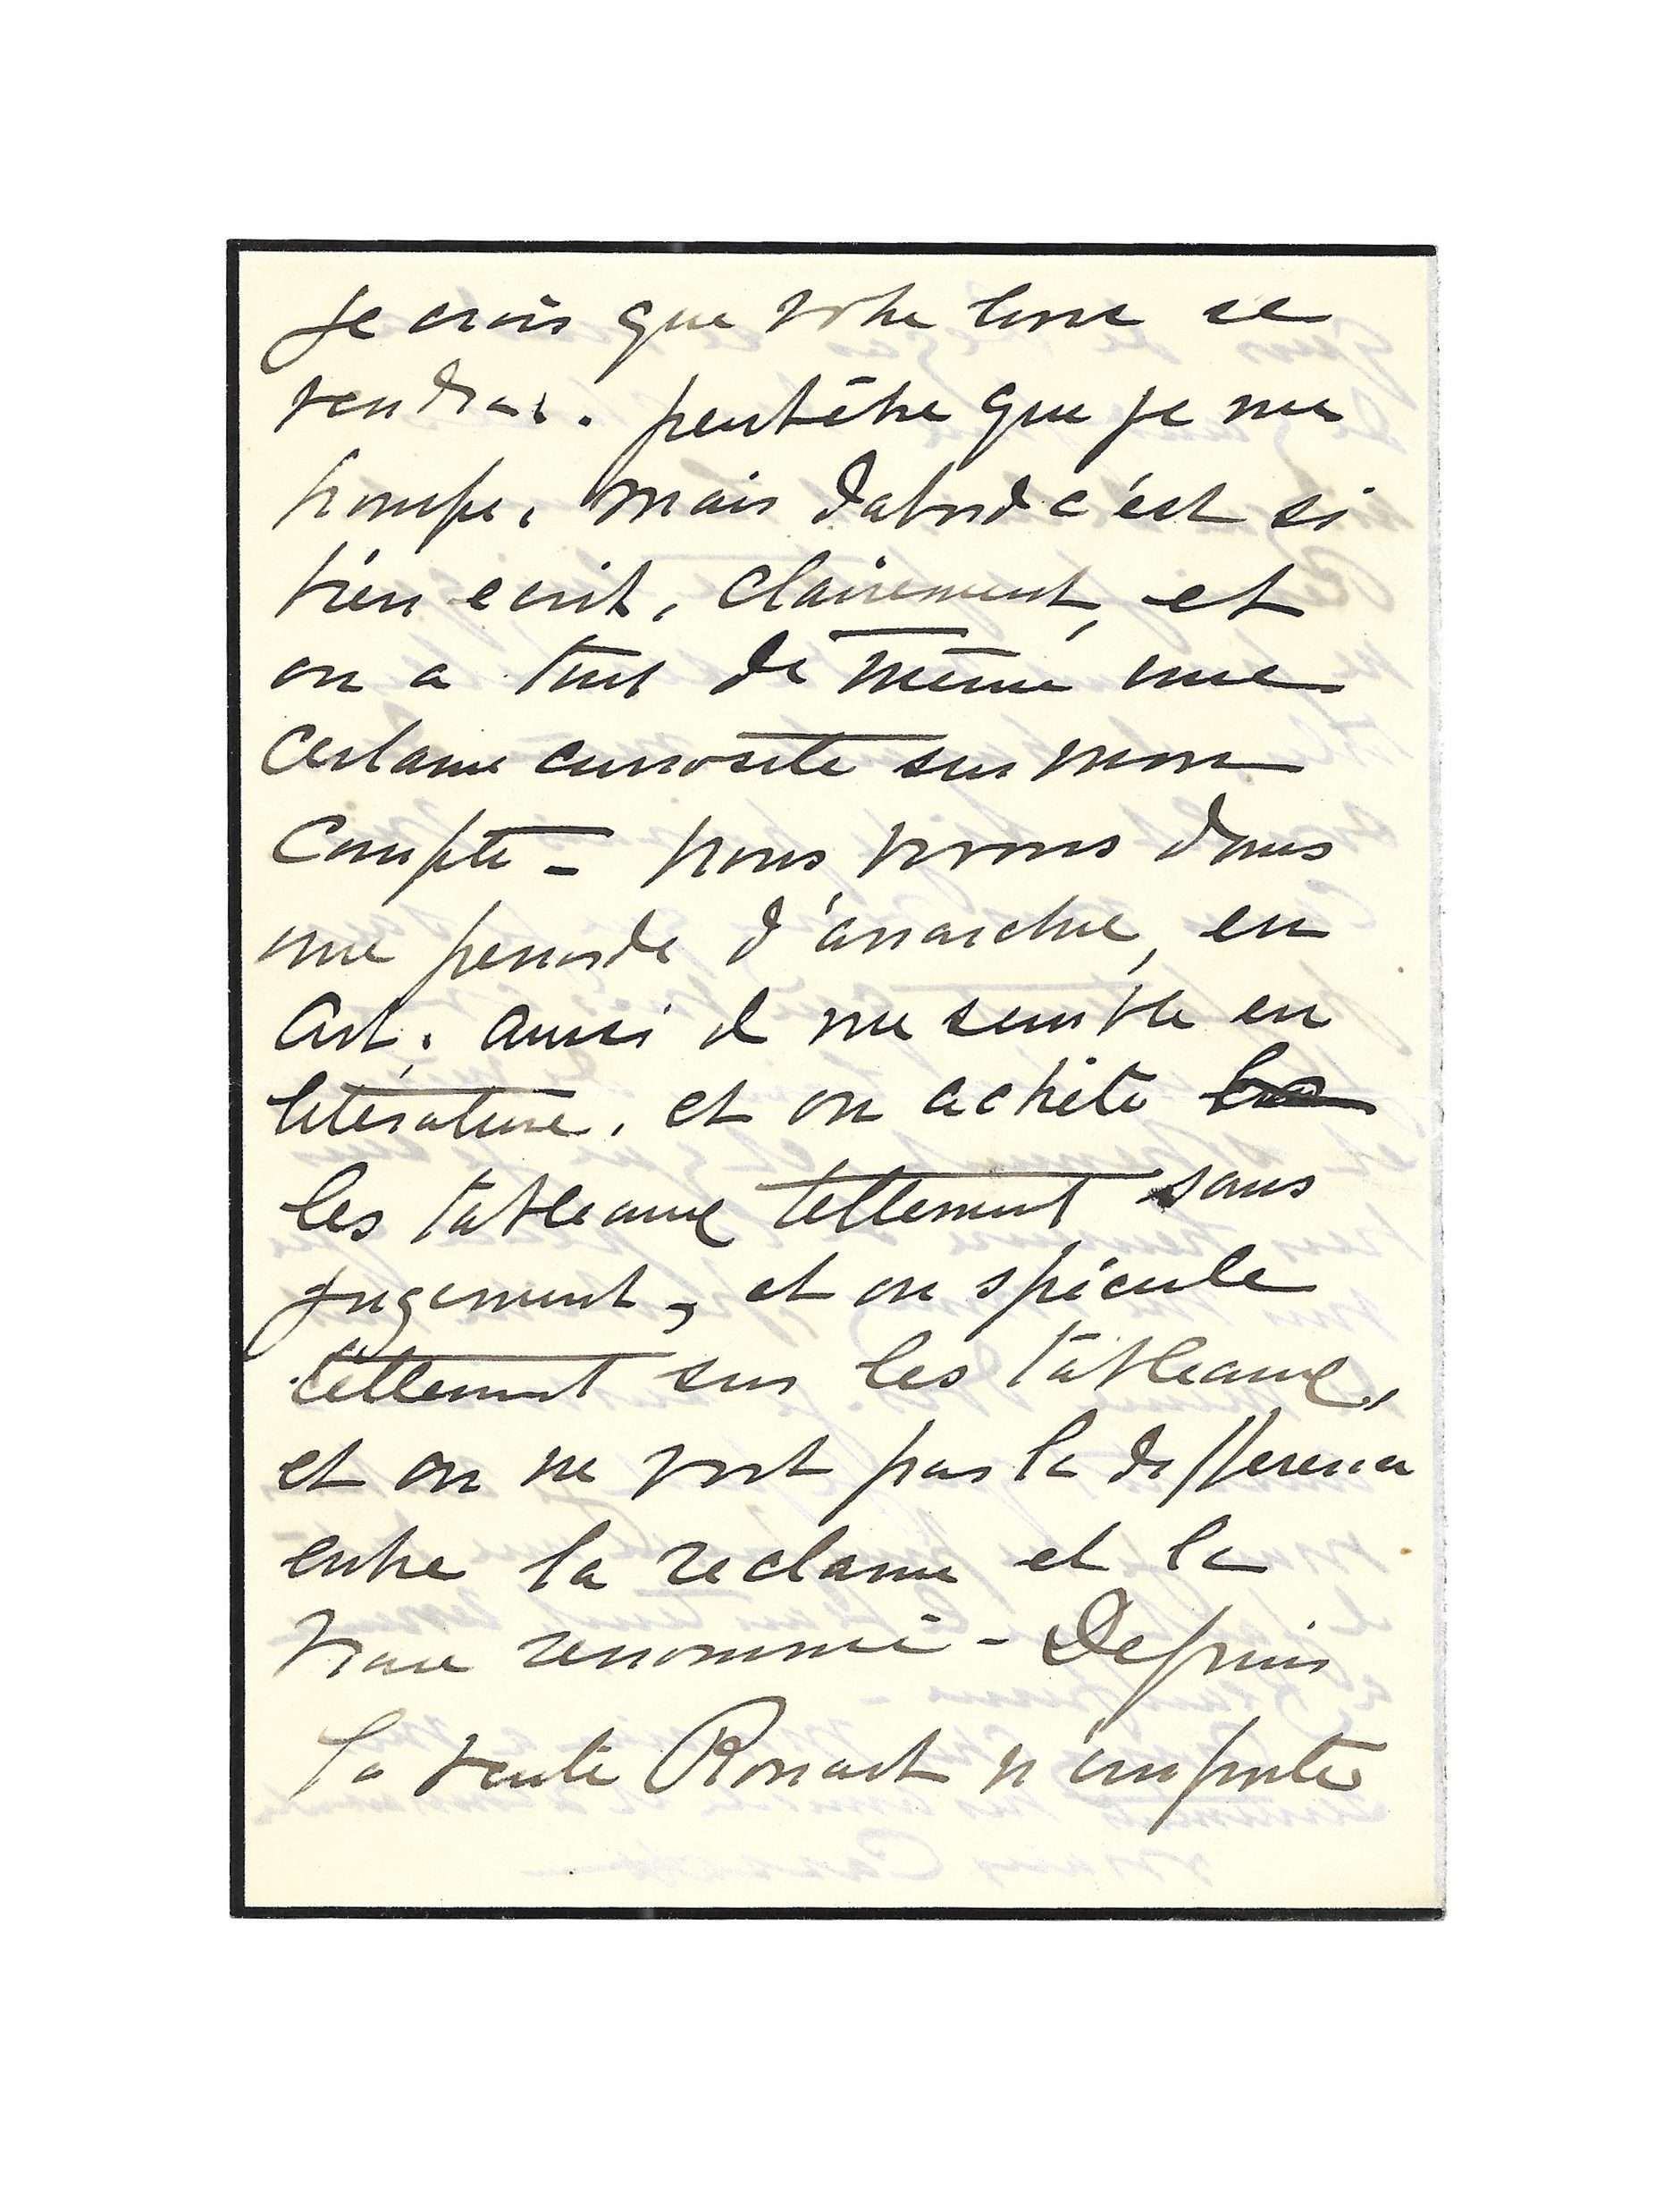 Je crois que votre livre se
vendra. peut être que je me
trompe, mais dabord c'est si
bien ecrit, clairement, et
on a tout de même une
certaine curiosité sur mon
Compte - nous vivons dans
une periode d'anarchie, en
art, aussi il me semble en
literature, et on achète
les tableaux tellement sans
jugement, et on spécule
tellement sur les tableaux,
et on ne voit pas la difference
entre la reclame et la
vraie renommé - Depuis
la vente Rouart n'importe